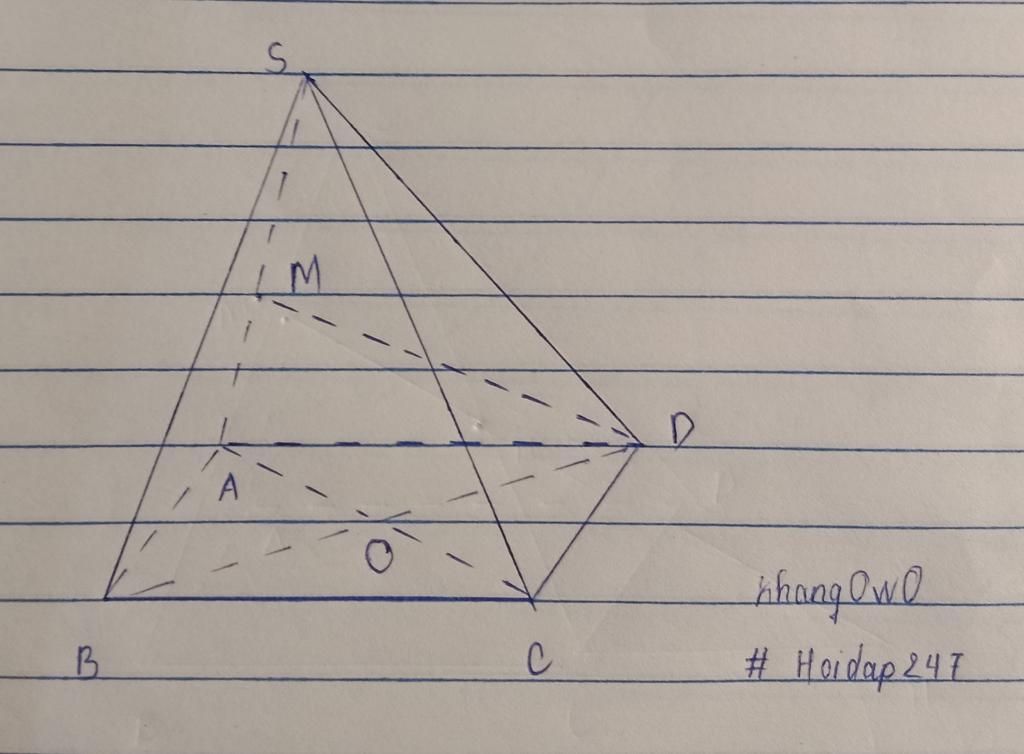 S
M
D
A
O
khangOwO
B
C
# Hoidap247